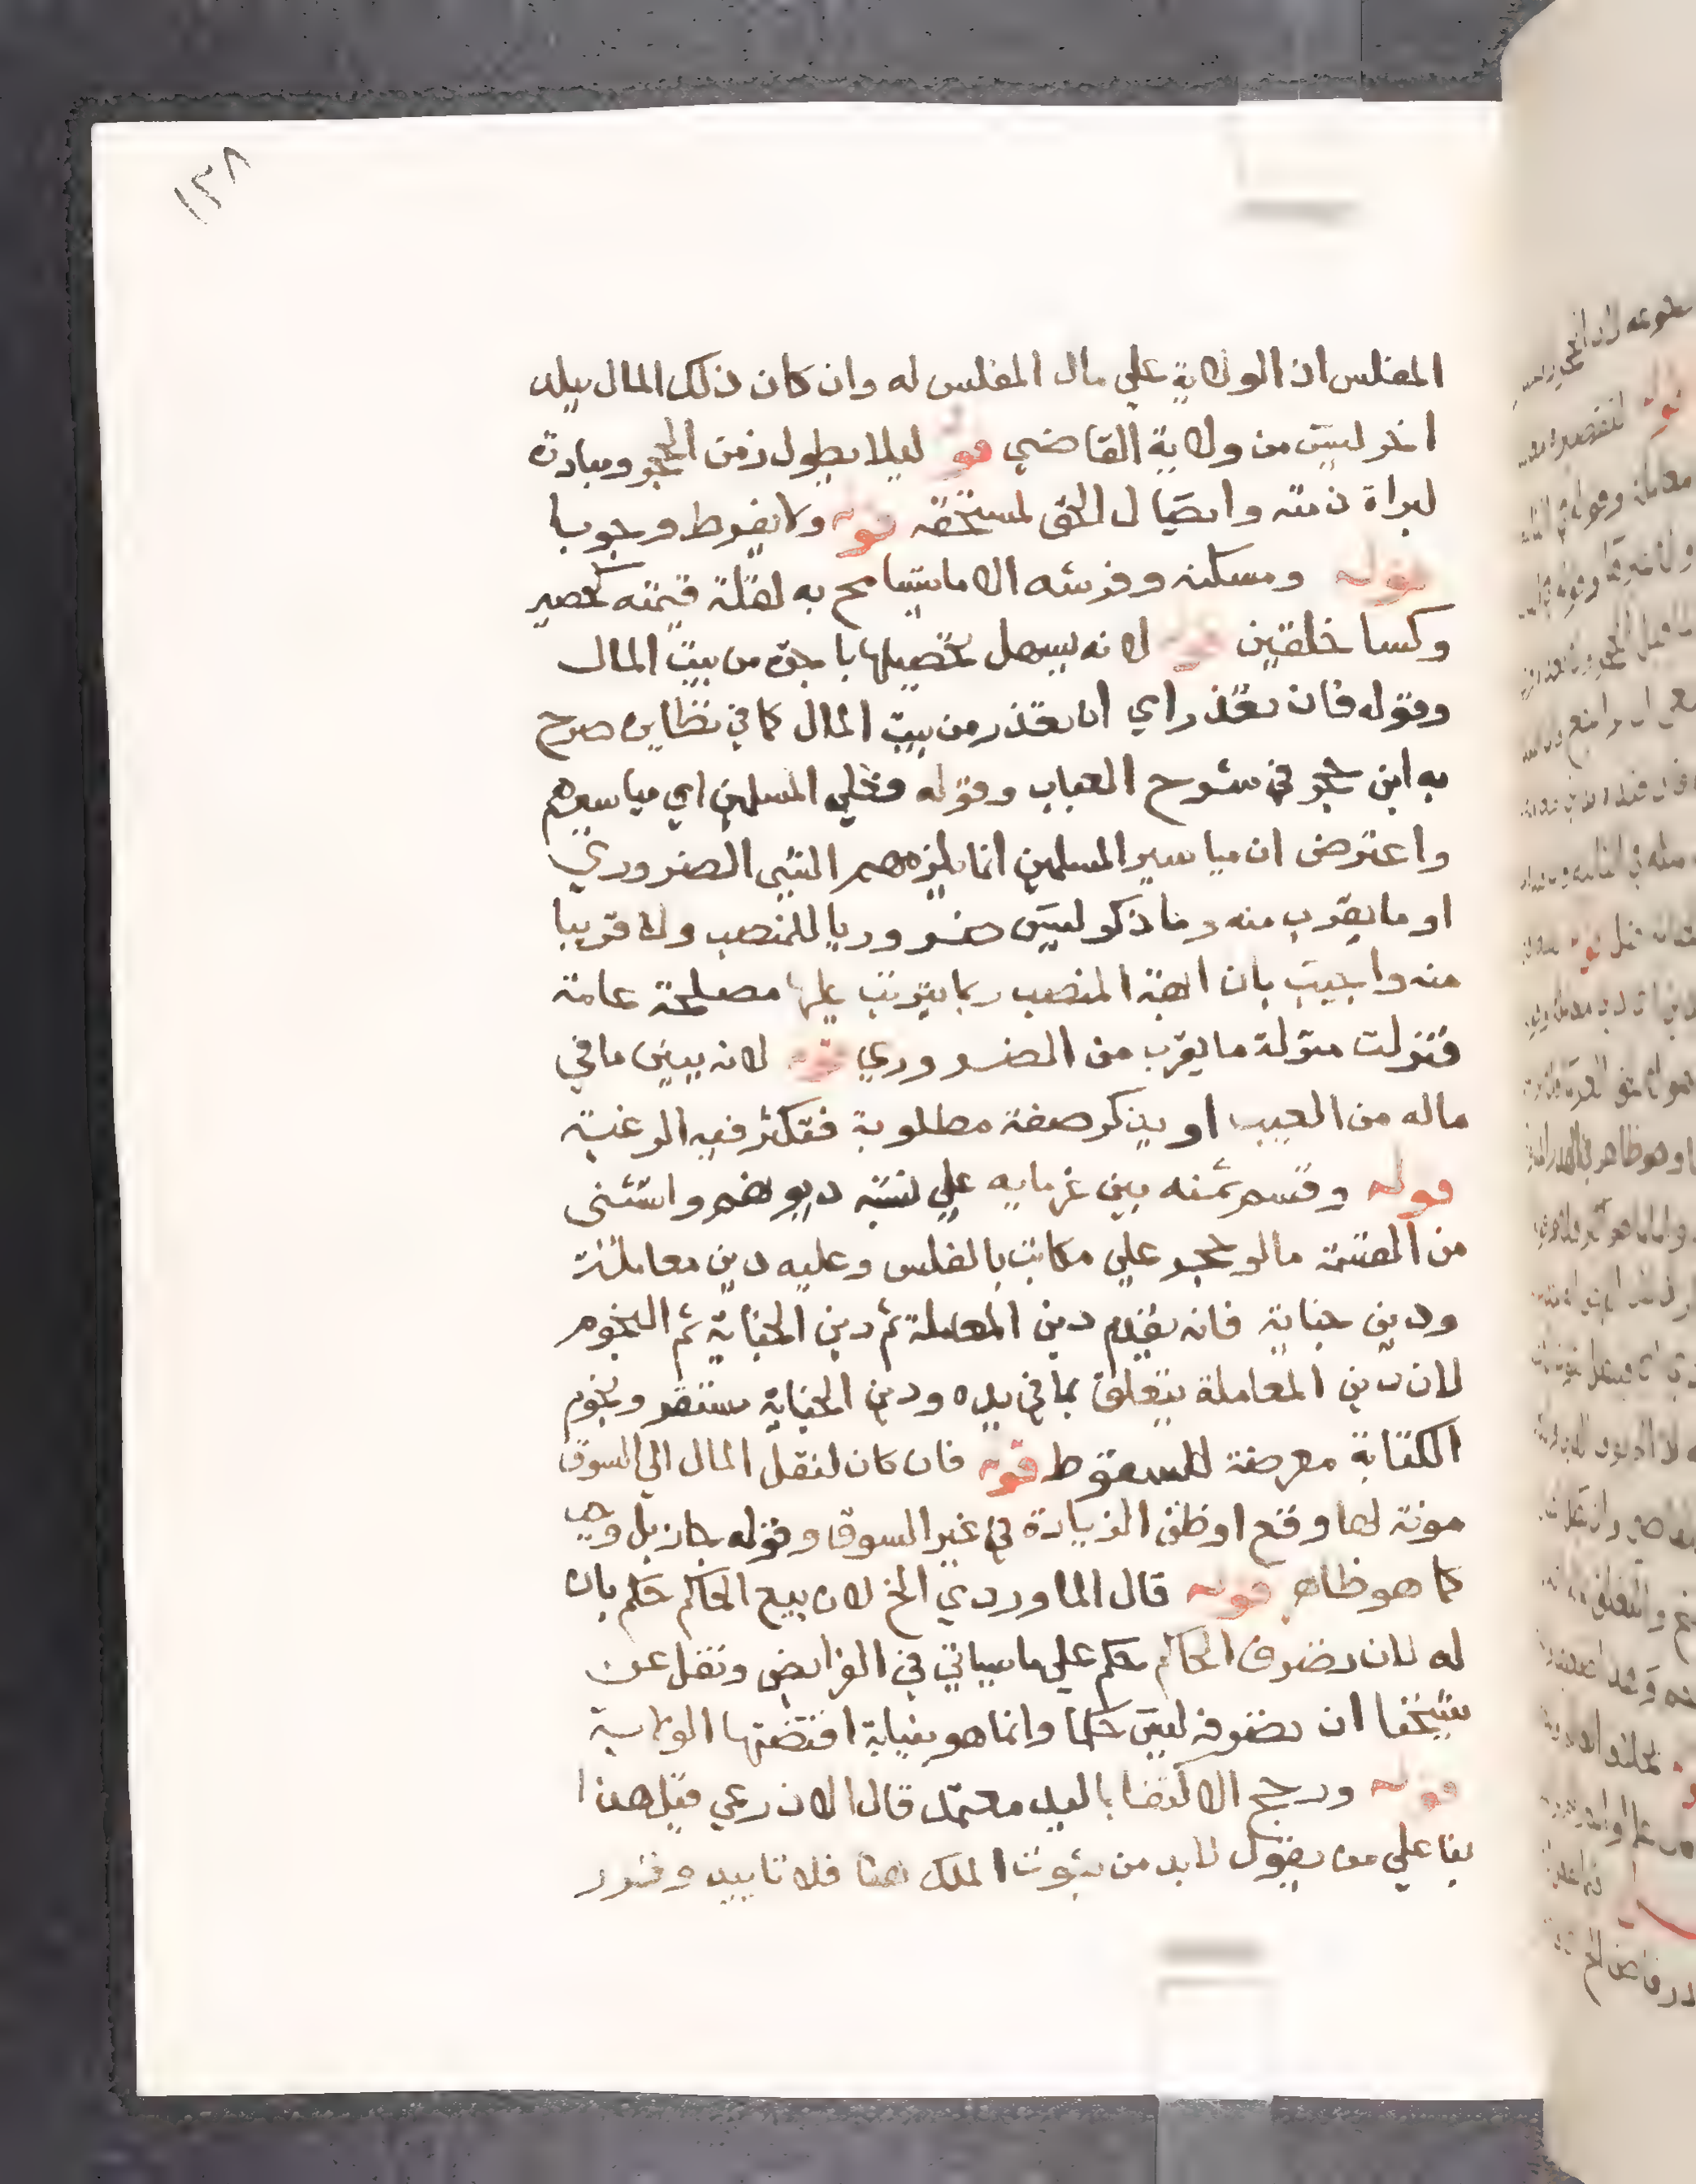 ١٣٨
المفلس اذ الولاية علي مال المفلس له وان كان ذلك المال ببلد
اخر ليس من ولاية القاضي قوله ليلا يطول زمن الحجر ومبادرة
لبراة ذمته وايصال الحق لمستحقه قوله ولا يفرط وجوبا
قوله ومسكنه وفرشه الا ما يتسامح به لقلة قيمته كحصير
وكسا خلقين قوله لانه يسهل تحصيلها باجرة من بيت المال
وقوله فان تعذر اي ان تعذر من بيت المال كما في نظايره صرح
به ابن حجر في شرح العباب وقوله فعلي المسلمين اي مياسيرهم
واعترض ان مياسير المسلمين انما يلزمهم الشي الضروري
او ما يقرب منه وما ذكر ليس ضروريا للمنصب ولا قريبا
منه واجيب بان ابهة المنصب ربما يترتب عليها مصلحة عامة
فنزلت منزلة ما يقرب من الضروري قوله لانه يبين ما في
ماله من العيب او يذكر صفة مطلوبة فتكثر فيه الرغبة
قوله وقسم ثمنه بين غرمايه علي نسبة ديونهم واستثنى
من القسمة ما لو حجر علي مكاتب بالفلس وعليه دين معاملة
ودين جناية فانه يقدم دين المعاملة ثم دين الجناية ثم النجوم
لان دين المعاملة يتعلق بما في يده ودين الجناية مستقر ونجوم
الكتابة معرضة للسقوط قوله فان كان لنقل المال الي السوق
مونة لها وقع او ظن الزيادة في غير السوق وقوله جاز بل وجب
كما هو ظاهر قوله قال الماوردي الخ لان بيع الحاكم حكم بان
له لان تصرف الحاكم حكم علي ما سياتي في الفرايض ونقل عن
شيخنا ان تصرفه ليس حكما وانما هو بنيابة اقتضتها الولاية
قوله ورجح الاكتفا باليد معتمد قال الاذرعي قيل هذا
بنا علي من يقول لابد من ثبوت الملك هنا فلا تاييد وقرر